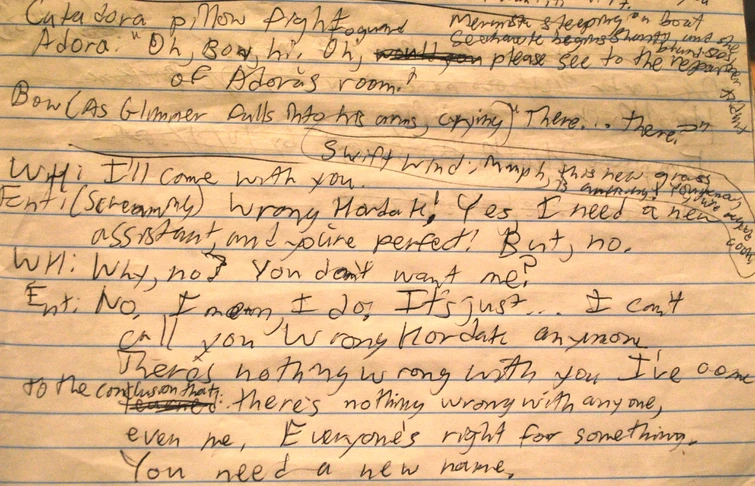 Catadora pillow fight
Mermista sleeping on boat
Seahawk begins shanty, and she
Adora: "Oh, Bow, hi. Oh, please see to the
of Adora's room."
Bow (As Glimmer falls into his arms, crying) "There... there?"
Swift Wind: Mmph, this new grass
is
WH: I'll come with you.
Ent: (Screaming) Wrong Hordak! Yes, I need a new
assistant, and you're perfect! But, no.
WH: Why, no? You don't want me?
Ent: No, I mean, I do, It's just... I can't
call you Wrong Hordak anymore.
There's nothing wrong with you I've come
to the conclusion that: there's nothing wrong with anyone,
even me. Everyone's right for something.
You need a new name.